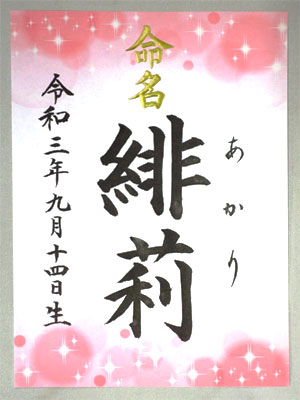 命名
緋莉
あかり
令和三年九月十四日生